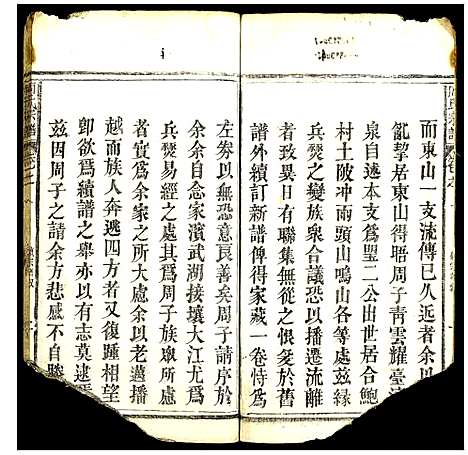 而東山一支流傳已久近者余以
氈摯居東山得晤周子青雲耀臺
泉自述本支爲聖二公出世居合鮑
村土陂冲兩頭山鳴山各等處茲緣
兵燹之變族衆合議恐以播遷流離
後日有聯集無從之恨爰於舊
譜外續訂新譜俾得家藏一卷恃爲
左劵以無恐意良善矣周子請序於
余余自念家濱武湖接壤大江尤爲
兵燹易經之處其爲周子族與所慮
者實爲余家之所大慮余以老邁播
越而族人奔逃四方者又復踵相望
卽欲爲續譜之舉亦以有志莫逮
茲因周子之請余方悲感不自勝